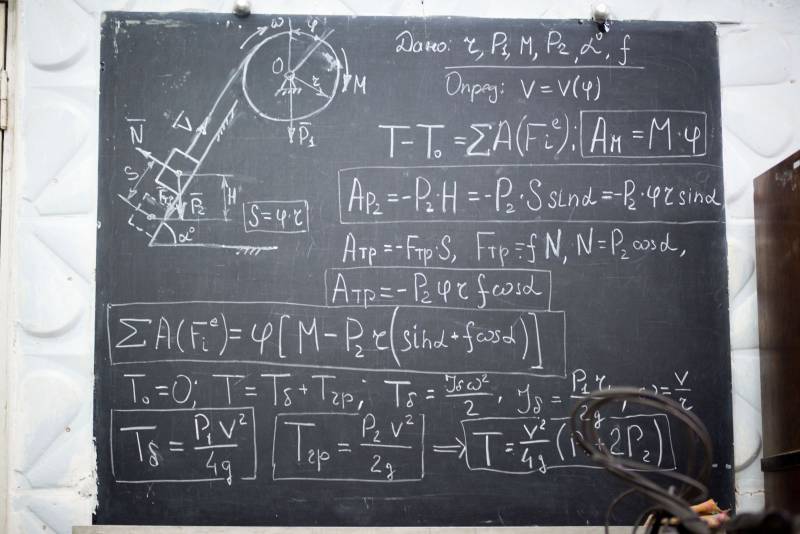 ω φ
O r M
P̄₁
N̄ Δ
S P̄₂ H
α°
S = φ·r
Дано: r, P₁, M, P₂, α°, f
Опред: V = V(φ)
T − T₀ = ΣA(Fᵢᵉ); Aм = M·φ
A_P₂ = −P₂·H = −P₂·S sinα = −P₂·φr sinα
Aтр = −Fтр S, Fтр = f N, N = P₂ cosα,
Aтр = −P₂ φ r f cosα
ΣA(Fᵢᵉ) = φ[M − P₂ r(sinα + f cosα)]
T₀ = 0; T = Tδ + Tгр; Tδ = Jδω²/2,
Tδ = P₁V²/4g Tгр = P₂V²/2g ⇒ T = V²/4g